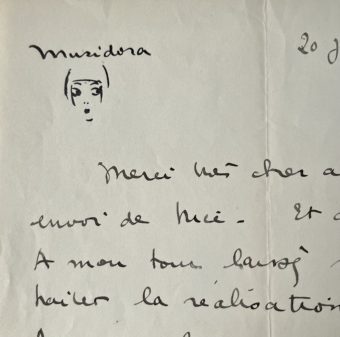 Musidora
20 j
Merci très cher a
envoi de Nice - Et
A mon tour laissez
haiter la réalisation